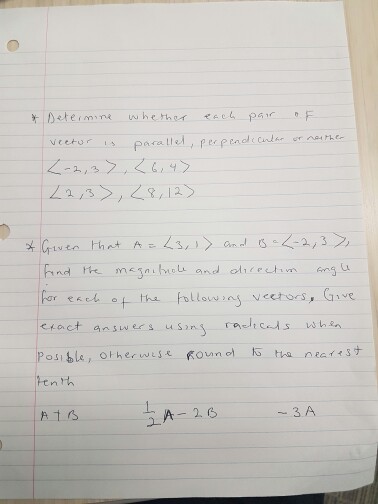 * Determine whether each pair of
vector is parallel, perpendicular or neither
<-2,3>, <6,4>
<2,3>, <8,12>
* Given that A = <3,1> and B = <-2,3>,
find the magnitude and direction angle
for each of the following vectors. Give
exact answers using radicals when
possible, otherwise round to the nearest
tenth
A + B    1/2 A - 2B    - 3A